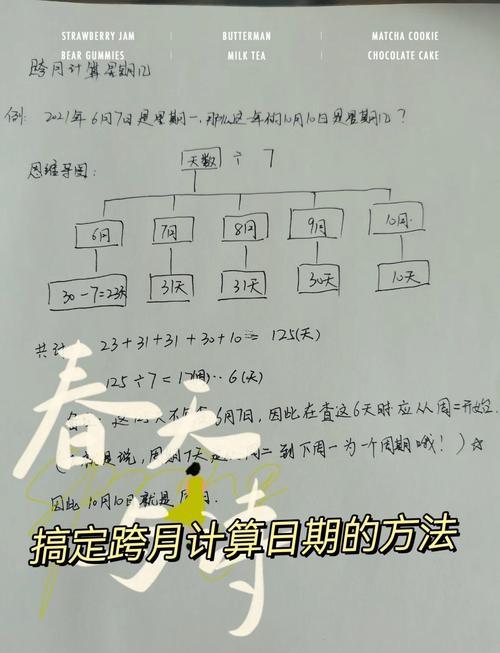 STRAWBERRY JAM BUTTERMAN MATCHA COOKIE
BEAR GUMMIES MILK TEA CHOCOLATE CAKE
跨月计算星期几
例: 2021年6月7日是星期一,那么这一年的10月10日是星期几?
思维导图:
天数 ÷ 7
6月 7月 8月 9月 10月
30-7=23天 31天 31天 30天 10天
共计 23+31+31+30+10= 125(天)
125÷7=17(周)…6(天)
6月7日,因此在查这6天时应从周二开始
说,周期7天 到下周一为一个周期哦!)☆
因此10月10日就是
春天
与诗
搞定跨月计算日期的方法